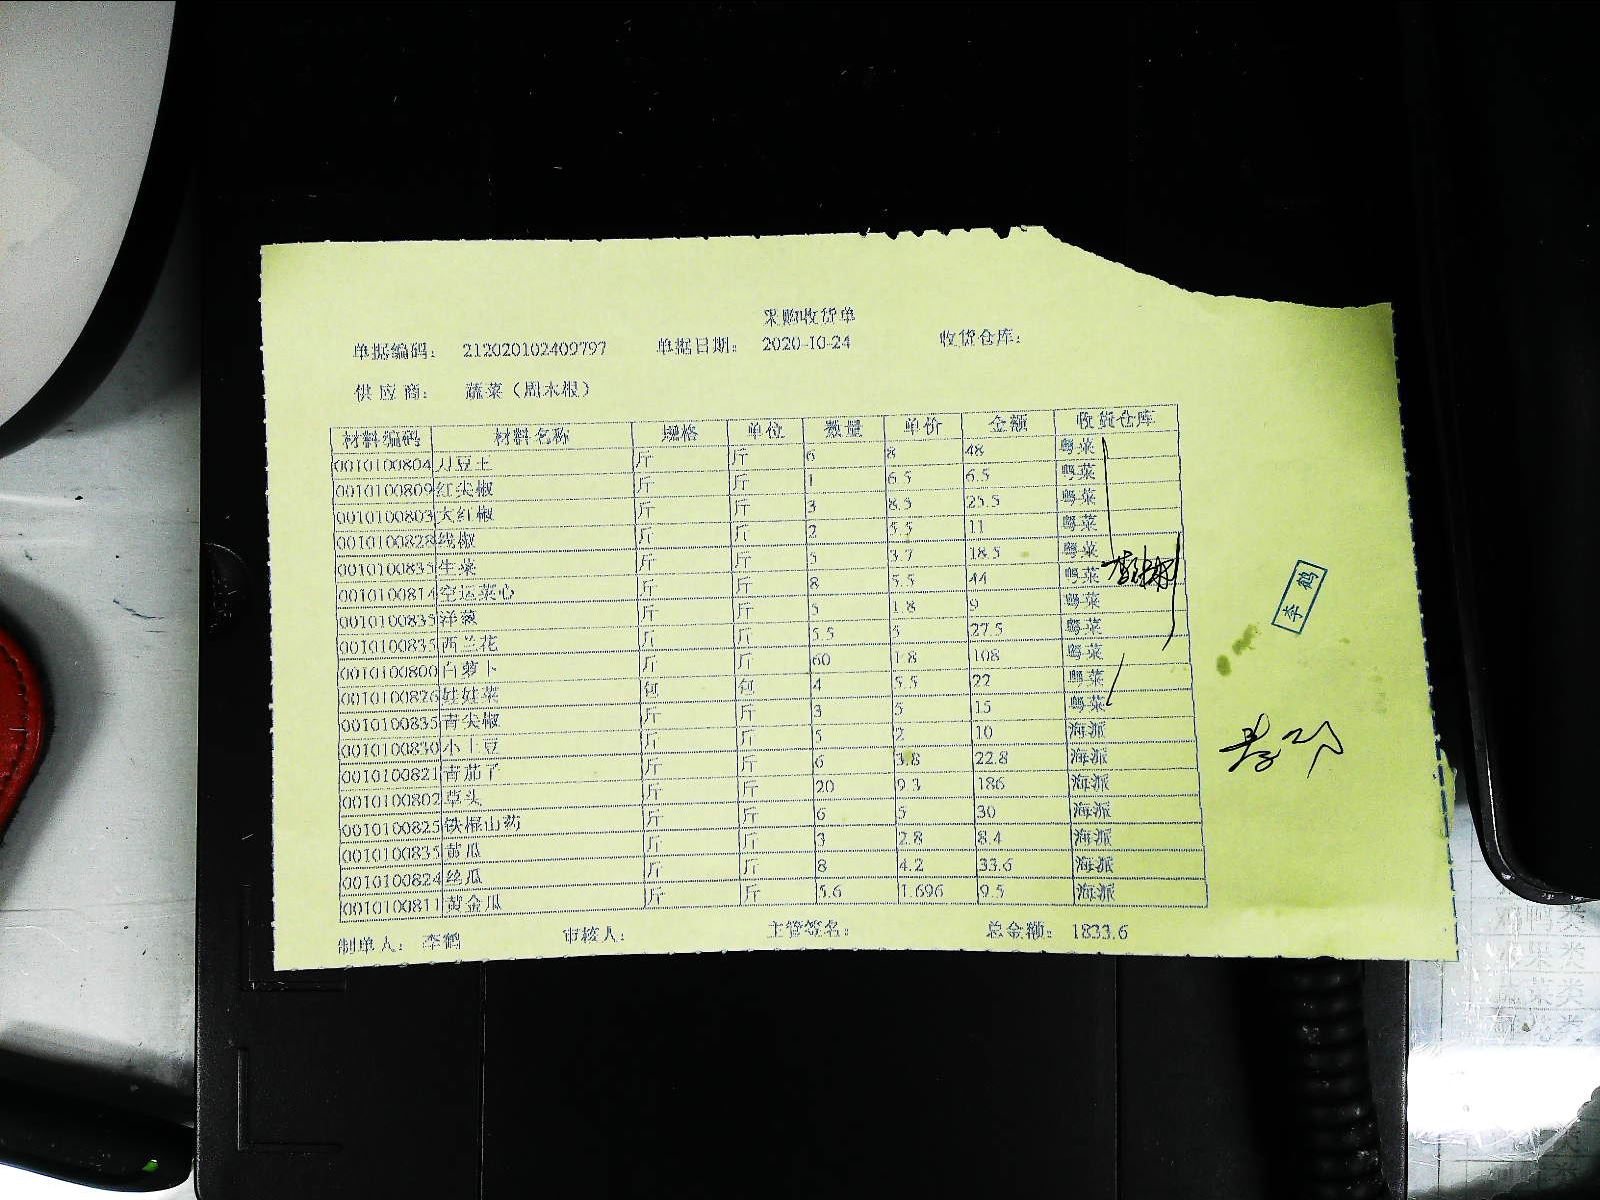 采购收货单
单据编码： 212020102409797 单据日期： 2020-10-24 收货仓库：
供应商： 蔬菜（周水根）
材料编码 材料名称 规格 单位 数量 单价 金额 收货仓库
0010100804 刀豆王 斤 斤 6 8 48 粤菜
0010100809 红尖椒 斤 斤 1 6.5 6.5 粤菜
0010100803 大红椒 斤 斤 3 8.5 25.5 粤菜
0010100828 线椒 斤 斤 2 5.5 11 粤菜
0010100835 生菜 斤 斤 5 3.7 18.5 粤菜
0010100814 空运菜心 斤 斤 8 5.5 44 粤菜
0010100835 洋葱 斤 斤 5 1.8 9 粤菜
0010100835 西兰花 斤 斤 5.5 5 27.5 粤菜
0010100800 白萝卜 斤 斤 60 1.8 108 粤菜
0010100826 娃娃菜 包 包 4 5.5 22 粤菜
0010100835 青尖椒 斤 斤 3 5 15 粤菜
0010100830 小土豆 斤 斤 5 2 10 海派
0010100821 青茄子 斤 斤 6 3.8 22.8 海派
0010100802 草头 斤 斤 20 9.3 186 海派
0010100825 铁棍山药 斤 斤 6 5 30 海派
0010100835 黄瓜 斤 斤 3 2.8 8.4 海派
0010100824 丝瓜 斤 斤 8 4.2 33.6 海派
0010100811 黄金瓜 斤 斤 5.6 1.696 9.5 海派
制单人： 李鹤 审核人： 主管签名： 总金额： 1833.6
李鹤